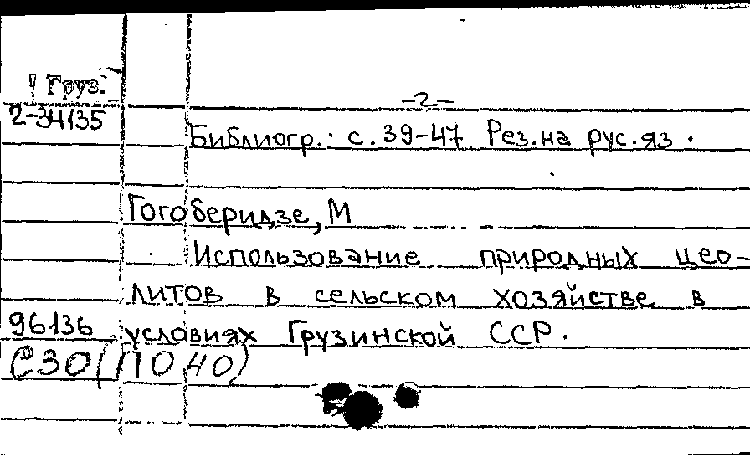 Груз.
-2-
2-34135
Библиогр.: с.39-47 Рез.на рус.яз.
Гогоберидзе, М
Использование природных цео-
литов в сельском хозяйстве в
96136 условиях Грузинской ССР.